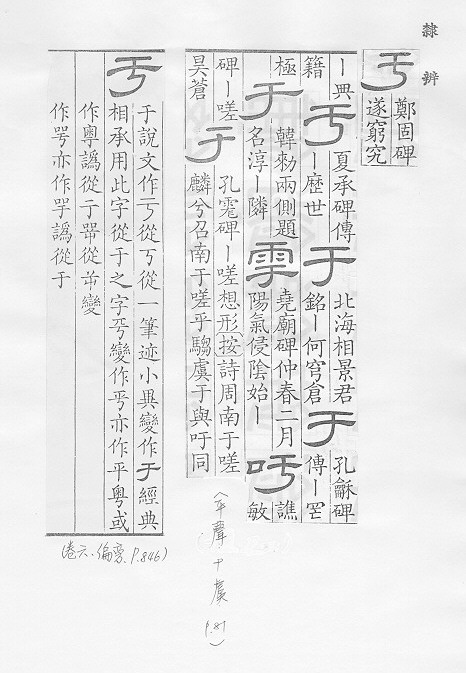 隸辨
亏
鄭固碑
遂窮究
｜典
籍
亏
夏承碑傳
｜歷世
于
北海相景君
銘｜何穹倉
于
孔龢碑
傳｜罔
極
于
韓勑兩側題
名淳｜隣
雩
堯廟碑仲春二月
陽氣侵陰始｜
吁
譙
敏
碑｜嗟
昊蒼
于
孔宠碑｜嗟想形按詩周南于嗟
麟兮召南于嗟乎騶虞于與吁同
(平聲十虞 P.81)
亏
于說文作亏從丂從一筆迹小異變作于經典
相承用此字從于之字亏變作丐亦作平粤或
作粵譌從于咢從屰變
作咢亦作譌從于
(卷六、偏旁、P.846)